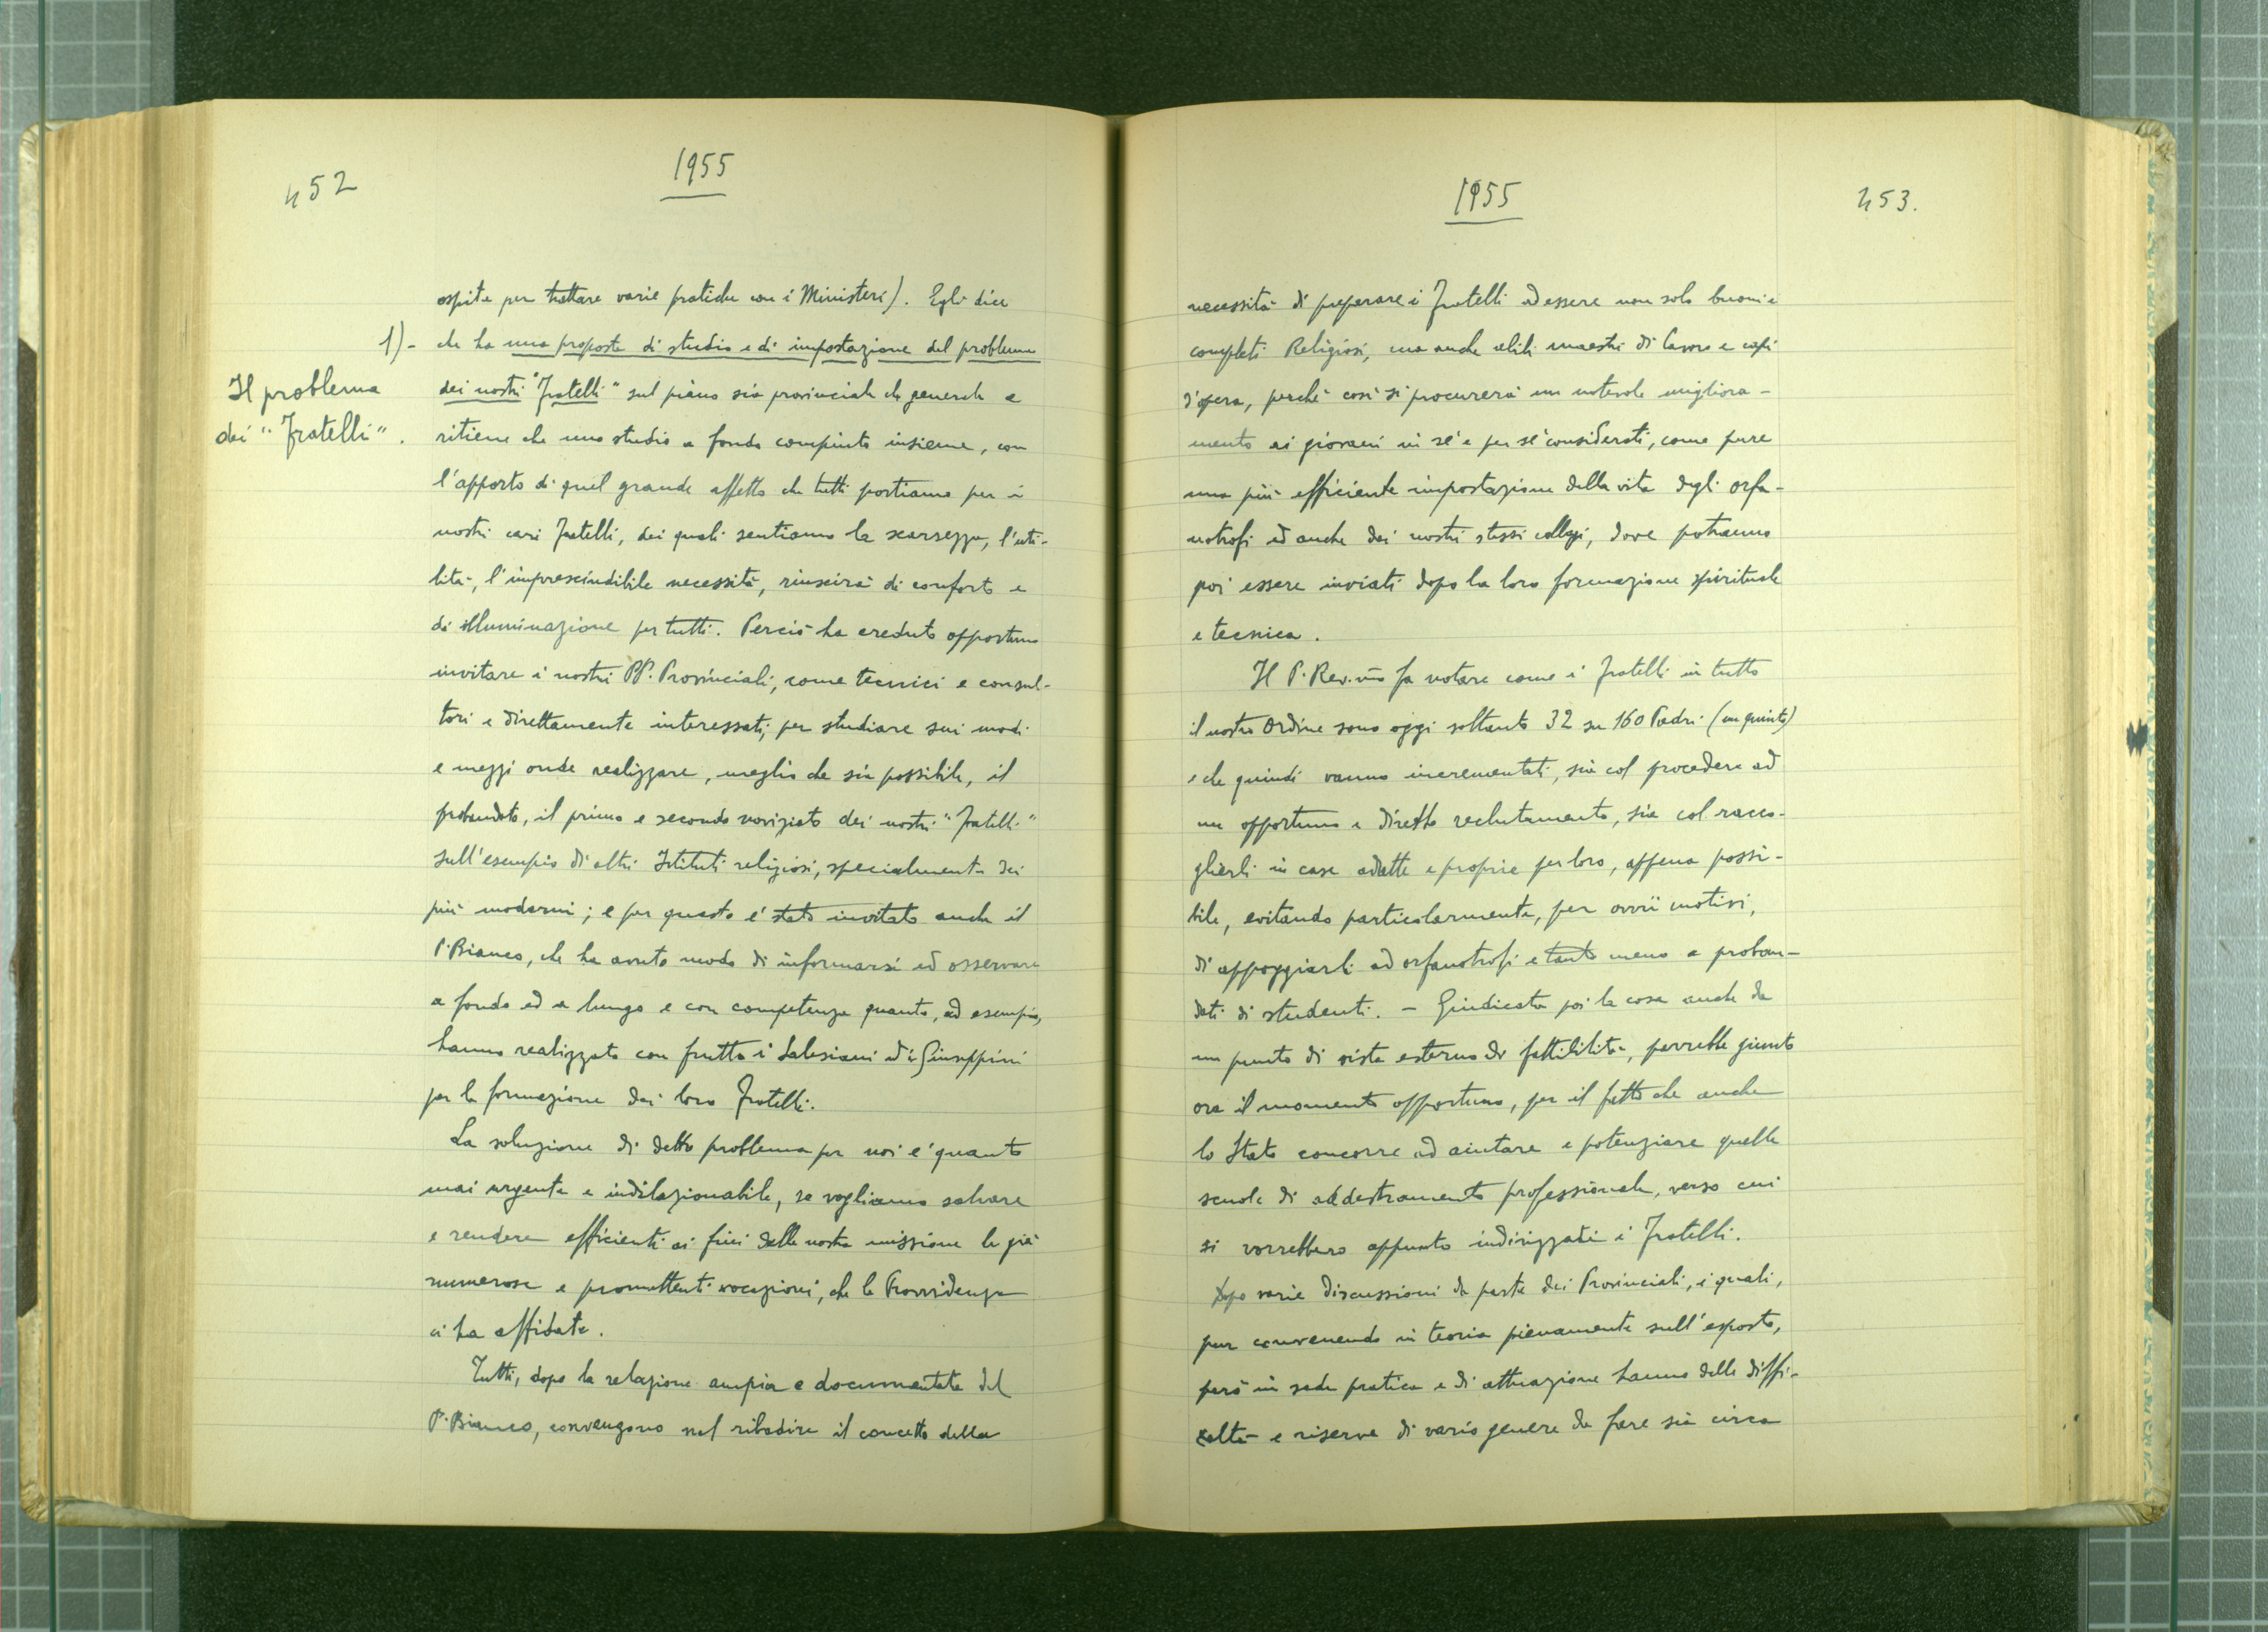 452
1955
ospite per trattare varie pratiche con i Ministeri). Egli dice
1)- che ha una proposta di studio e di impostazione del problema
Il problema
dei "Fratelli".
dei nostri "Fratelli" sul piano sia provinciale che generale e
ritiene che uno studio a fondo compiuto insieme, con
l'apporto di quel grande affetto che tutti portiamo per i
nostri cari Fratelli, dei quali sentiamo la scarsezza, l'uti-
lità, l'imprescindibile necessità, riuscirà di conforto e
di illuminazione per tutti. Perciò ha creduto opportuno
invitare i nostri PP. Provinciali, come tecnici e consul-
tori e direttamente interessati, per studiare sui modi
e mezzi onde realizzare, meglio che sia possibile, il
probandato, il primo e secondo noviziato dei nostri "Fratelli"
sull'esempio di altri Istituti religiosi, specialmente dei
più moderni; e per questo è stato invitato anche il
P. Bianco, che ha avuto modo di informarsi ed osservare
a fondo ed a lungo e con competenza quanto, ad esempio,
hanno realizzato con frutto i Salesiani ed i Giuseppini
per la formazione dei loro Fratelli.
La soluzione di detto problema per noi è quanto
mai urgente e indilazionabile, se vogliamo salvare
e rendere efficienti ai fini della nostra missione le già
numerose e promettenti vocazioni, che la Provvidenza
ci ha affidate.
Tutti, dopo la relazione ampia e documentata del
P. Bianco, convengono nel ribadire il concetto della
1955
453.
necessità di preparare i Fratelli ad essere non solo buoni e
completi Religiosi, ma anche abili maestri di lavoro e capi
d'opera, perchè così si procurerà un notevole migliora-
mento ai giovani in sè e per sè considerati, come pure
una più efficiente impostazione della vita degli orfa-
notrofi ed anche dei nostri stessi collegi, dove potranno
poi essere inviati dopo la loro formazione spirituale
e tecnica.
Il P. Rev.mo fa notare come i Fratelli in tutto
il nostro Ordine sono oggi soltanto 32 su 160 Padri (un quinto)
e che quindi vanno incrementati, sia col procedere ad
un opportuno e diretto reclutamento, sia col racco-
glierli in case adatte e proprie per loro, appena possi-
bile, evitando particolarmente, per ovvii motivi,
di appoggiarli ad orfanotrofi e tanto meno a proban-
dati di studenti. - Giudicata poi la cosa anche da
un punto di vista esterno di fattibilità, parrebbe giunto
ora il momento opportuno, per il fatto che anche
lo Stato concorre ad aiutare e potenziare quelle
scuole di addestramento professionale, verso cui
si vorrebbero appunto indirizzati i Fratelli.
Dopo varie discussioni da parte dei Provinciali, i quali,
pur convenendo in teoria pienamente sull'esposto,
però in sede pratica e di attuazione hanno delle diffi-
coltà e riserve di vario genere da fare sia circa